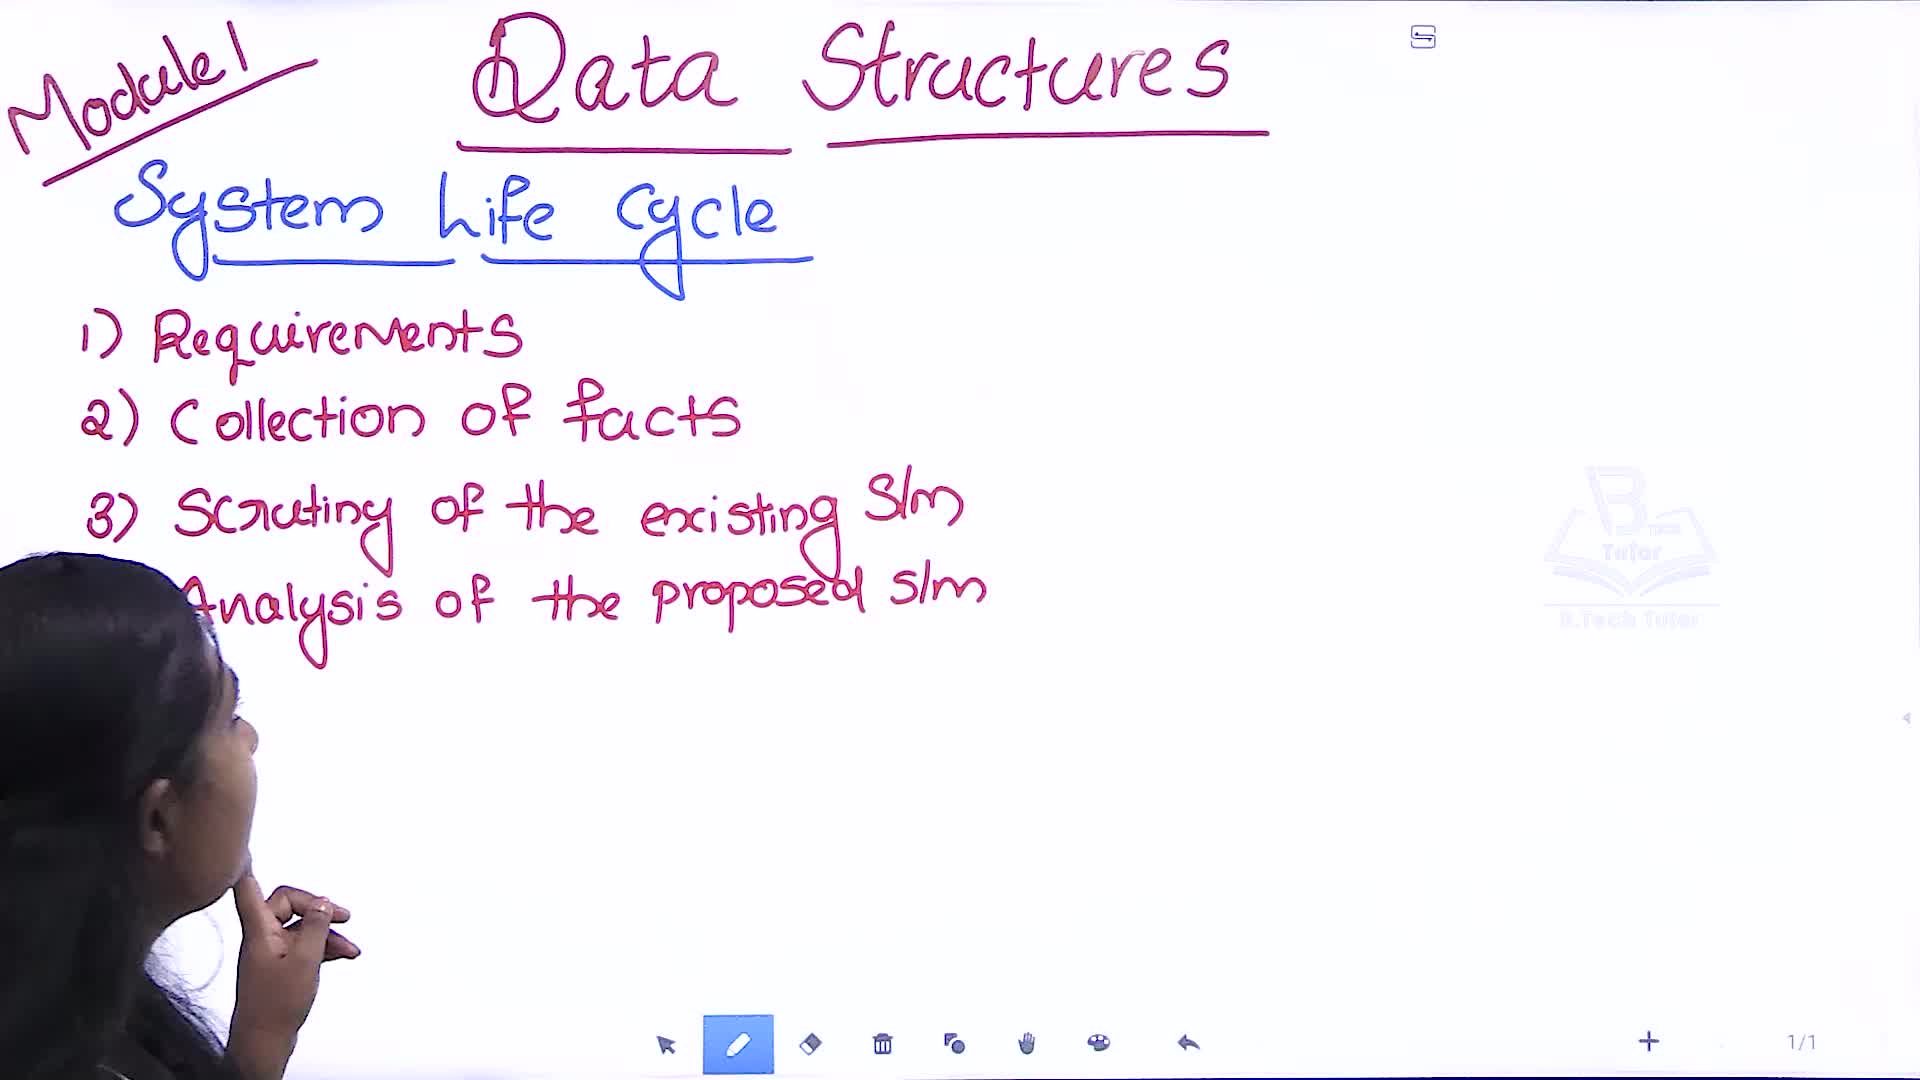 Module 1
Data Structures
System Life Cycle
1) Requirements
2) Collection of facts
3) Scrutiny of the existing S/m
Analysis of the proposed s/m
Tutor
B.Tech Tutor
1/1